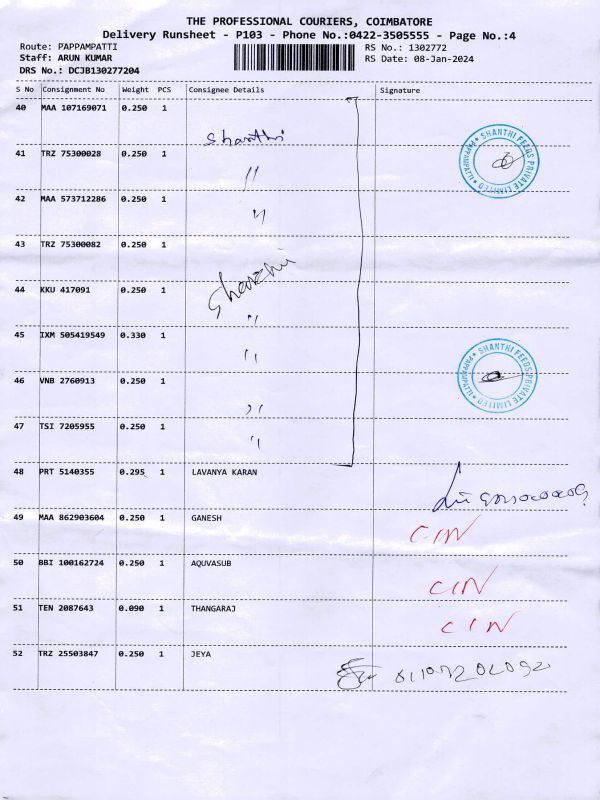 THE PROFESSIONAL COURIERS, COIMBATORE
Delivery Runsheet - P103 - Phone No.:0422-3505555 - Page No.:4
Route: PAPPAMPATTI RS No.: 1302772
Staff: ARUN KUMAR RS Date: 08-Jan-2024
DRS No.: DCJB130277204
S No Consignment No Weight PCS Consignee Details Signature
40 MAA 107169071 0.250 1
Shanthi
41 TRZ 75300028 0.250 1
"
42 MAA 573712286 0.250 1
"
43 TRZ 75300082 0.250 1
44 KKU 417091 0.250 1
"
45 IXM 505419549 0.330 1
"
46 VNB 2760913 0.250 1
"
47 TSI 7205955 0.250 1
"
SHANTHI FEEDS PRIVATE LIMITED
PAPPAMPATTI
SHANTHI FEEDS PRIVATE LIMITED
PAPPAMPATTI
48 PRT 5140355 0.295 1 LAVANYA KARAN
49 MAA 862903604 0.250 1 GANESH
CIN
50 BBI 100162724 0.250 1 AQUVASUB
CIN
51 TEN 2087643 0.090 1 THANGARAJ
CIN
52 TRZ 25503847 0.250 1 JEYA